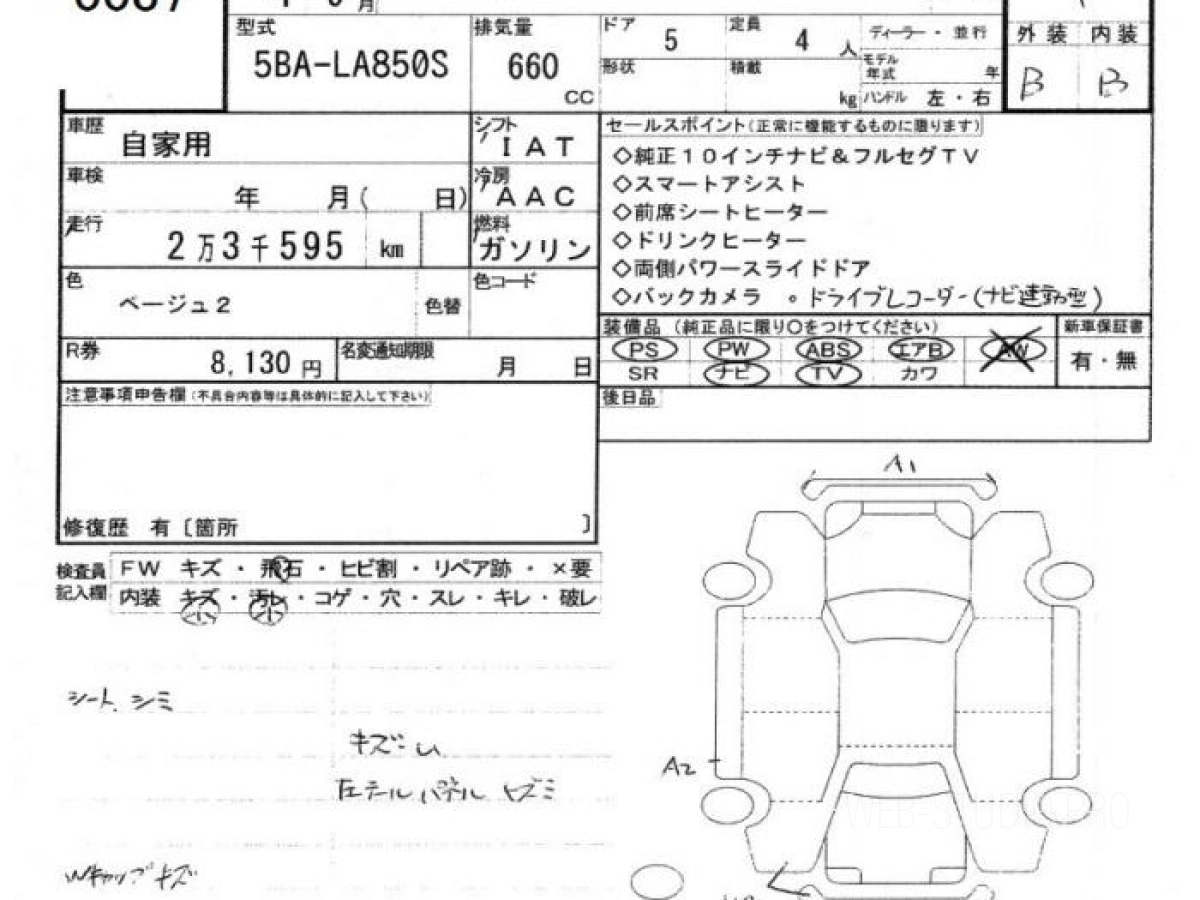 月
型式 排気量 ドア 5 定員 4 人 ディーラー ・ 並行 外装 内装
5BA-LA850S 660 CC 形状 積載 kg モデル年式 年 B B
ハンドル 左 ・ 右
車歴 自家用 シフト IAT セールスポイント(正常に機能するものに限ります)
◇純正10インチナビ&フルセグTV
車検 年 月( 日) 冷房 AAC ◇スマートアシスト
◇前席シートヒーター
走行 2万3千595 km 燃料 ガソリン ◇ドリンクヒーター
◇両側パワースライドドア
色 ベージュ2 色替 色コード ◇バックカメラ 。ドライブレコーダー(ナビ連動型)
装備品 (純正品に限り○をつけてください) 新車保証書
R券 8,130 円 名変通知期限 月 日 PS PW ABS エアB AW 有・無
SR ナビ TV カワ
注意事項申告欄(不具合内容等は具体的に記入して下さい) 後日品
A1
修復歴 有 [箇所 ]
検査員記入欄 FW キズ ・ 飛石 ・ ヒビ割 ・ リペア跡 ・ ×要
内装 キズ ・ 汚レ ・ コゲ ・ 穴 ・ スレ ・ キレ ・ 破レ
小 小
シート、シミ
キズ
左テールパネル
A2
WEB-STUDIO.PRO
Wキャップキズ